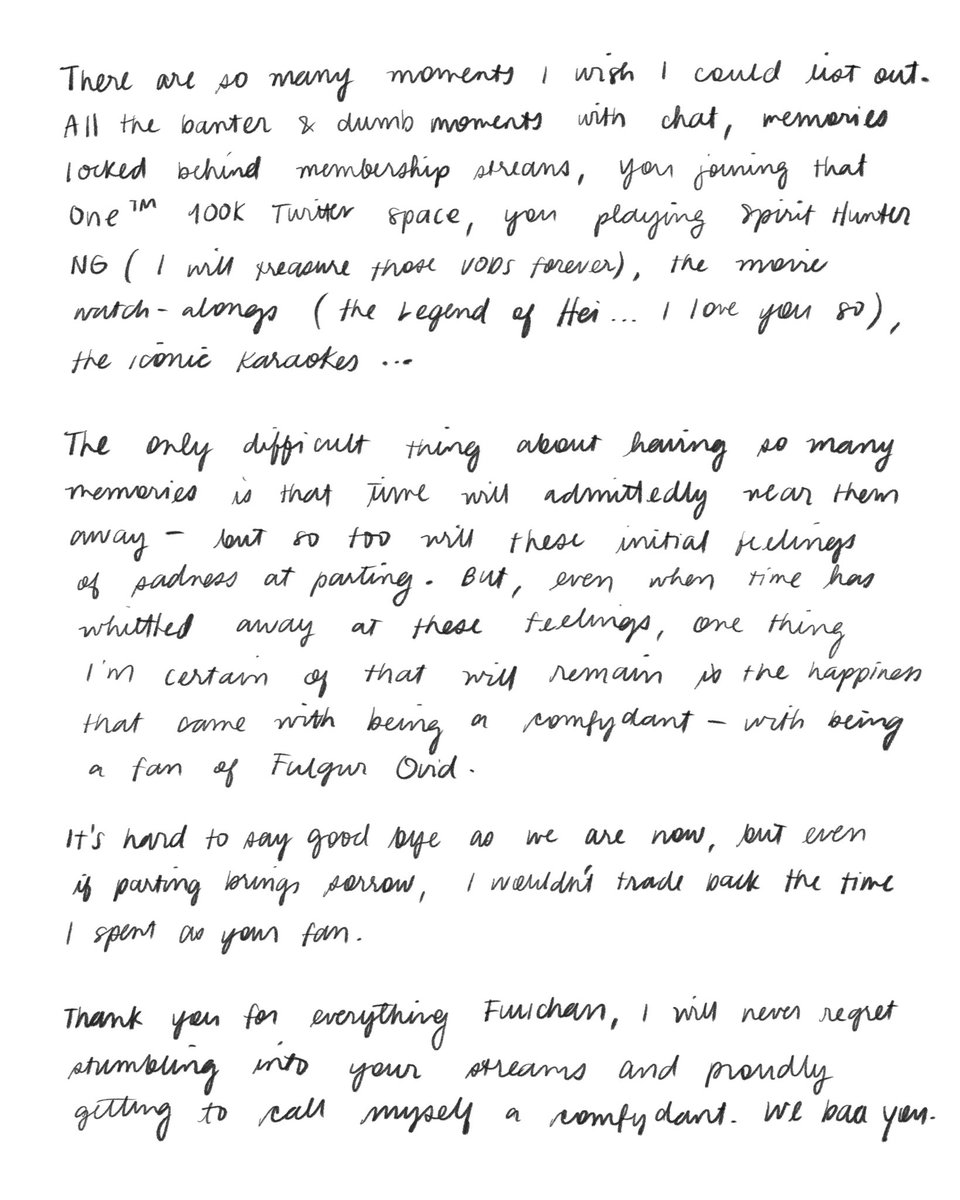 There are so many moments I wish I could list out.
All the banter & dumb moments with chat, memories
locked behind membership streams, you joining that
One™ 100K Twitter space, you playing Spirit Hunter
NG (I will treasure those VODs forever), the movie
watch-alongs (the Legend of Hei... I love you so),
the iconic karaokes ...
The only difficult thing about having so many
memories is that time will admittedly wear them
away - but so too will these initial feelings
of sadness at parting. But, even when time has
whittled away at these feelings, one thing
I'm certain of that will remain is the happiness
that came with being a comfydant - with being
a fan of Fulgur Ovid.
It's hard to say good bye as we are now, but even
if parting brings sorrow, I wouldn't trade back the time
I spent as your fan.
Thank you for everything Fuuchan, I will never regret
stumbling into your streams and proudly
getting to call myself a comfydant. We baa you.